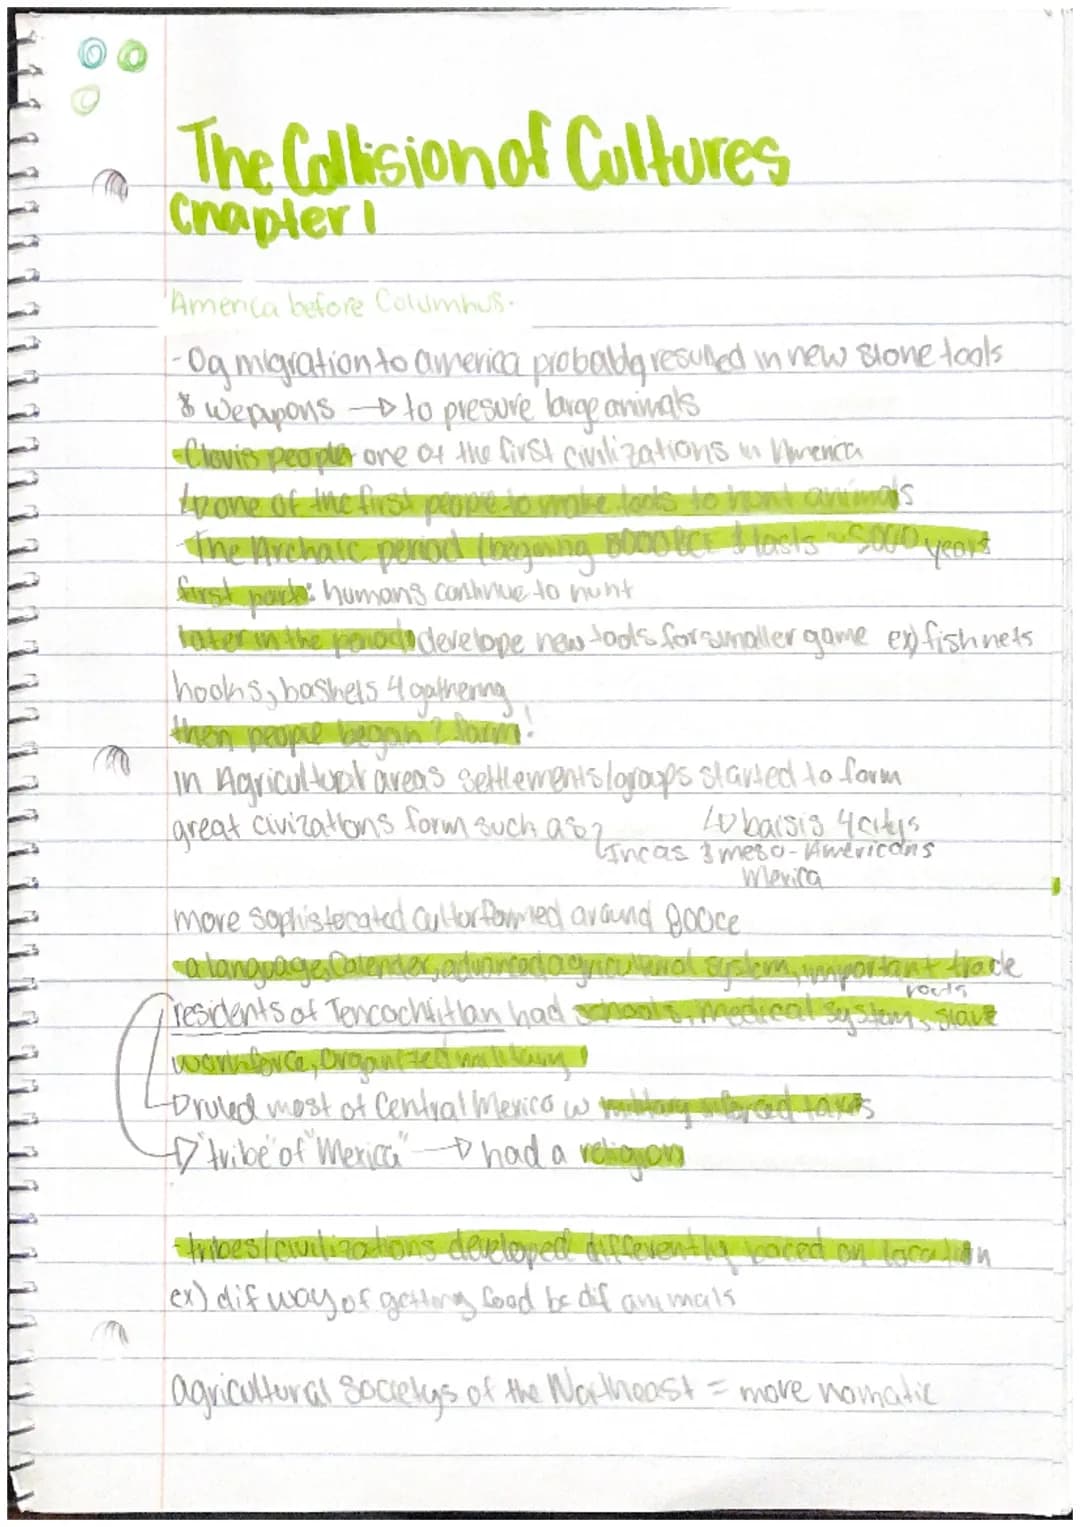 The Collision of Cultures
Chapter 1
America before Columbus.
- Og migration to america probably resulted in new stone tools
& weapons → to presure large animals
- Clovis people one of the first civilizations in America
↳ one of the first people to make tools to hunt animals
- The Archaic period (begining 8000 BCE & lasts ~5000 years
first part: humans continue to hunt
later in the period: develope new tools for smaller game ex) fishnets
hooks, baskets 4 gathering
then people began 2 farm!
in Agricultural areas settlements/groups started to form
great civizations form such as ↳ baisis 4 citys
↳ Incas & meso-Americans
Mexica
more sophistecated cultur formed around 800ce
- a language, Calender, advanced agricultural system, important trade
routs
residents of Tencochtitlan had schools, medical system, slave
workforce, organized military
→ ruled most of Central Mexico w military inforced taxes
→ "tribe" of "Mexica" → had a religion
- tribes/civilizations developed differently baced on location
ex) dif way of getting food bc dif animals
agricultural Societys of the Northeast = more nomatic